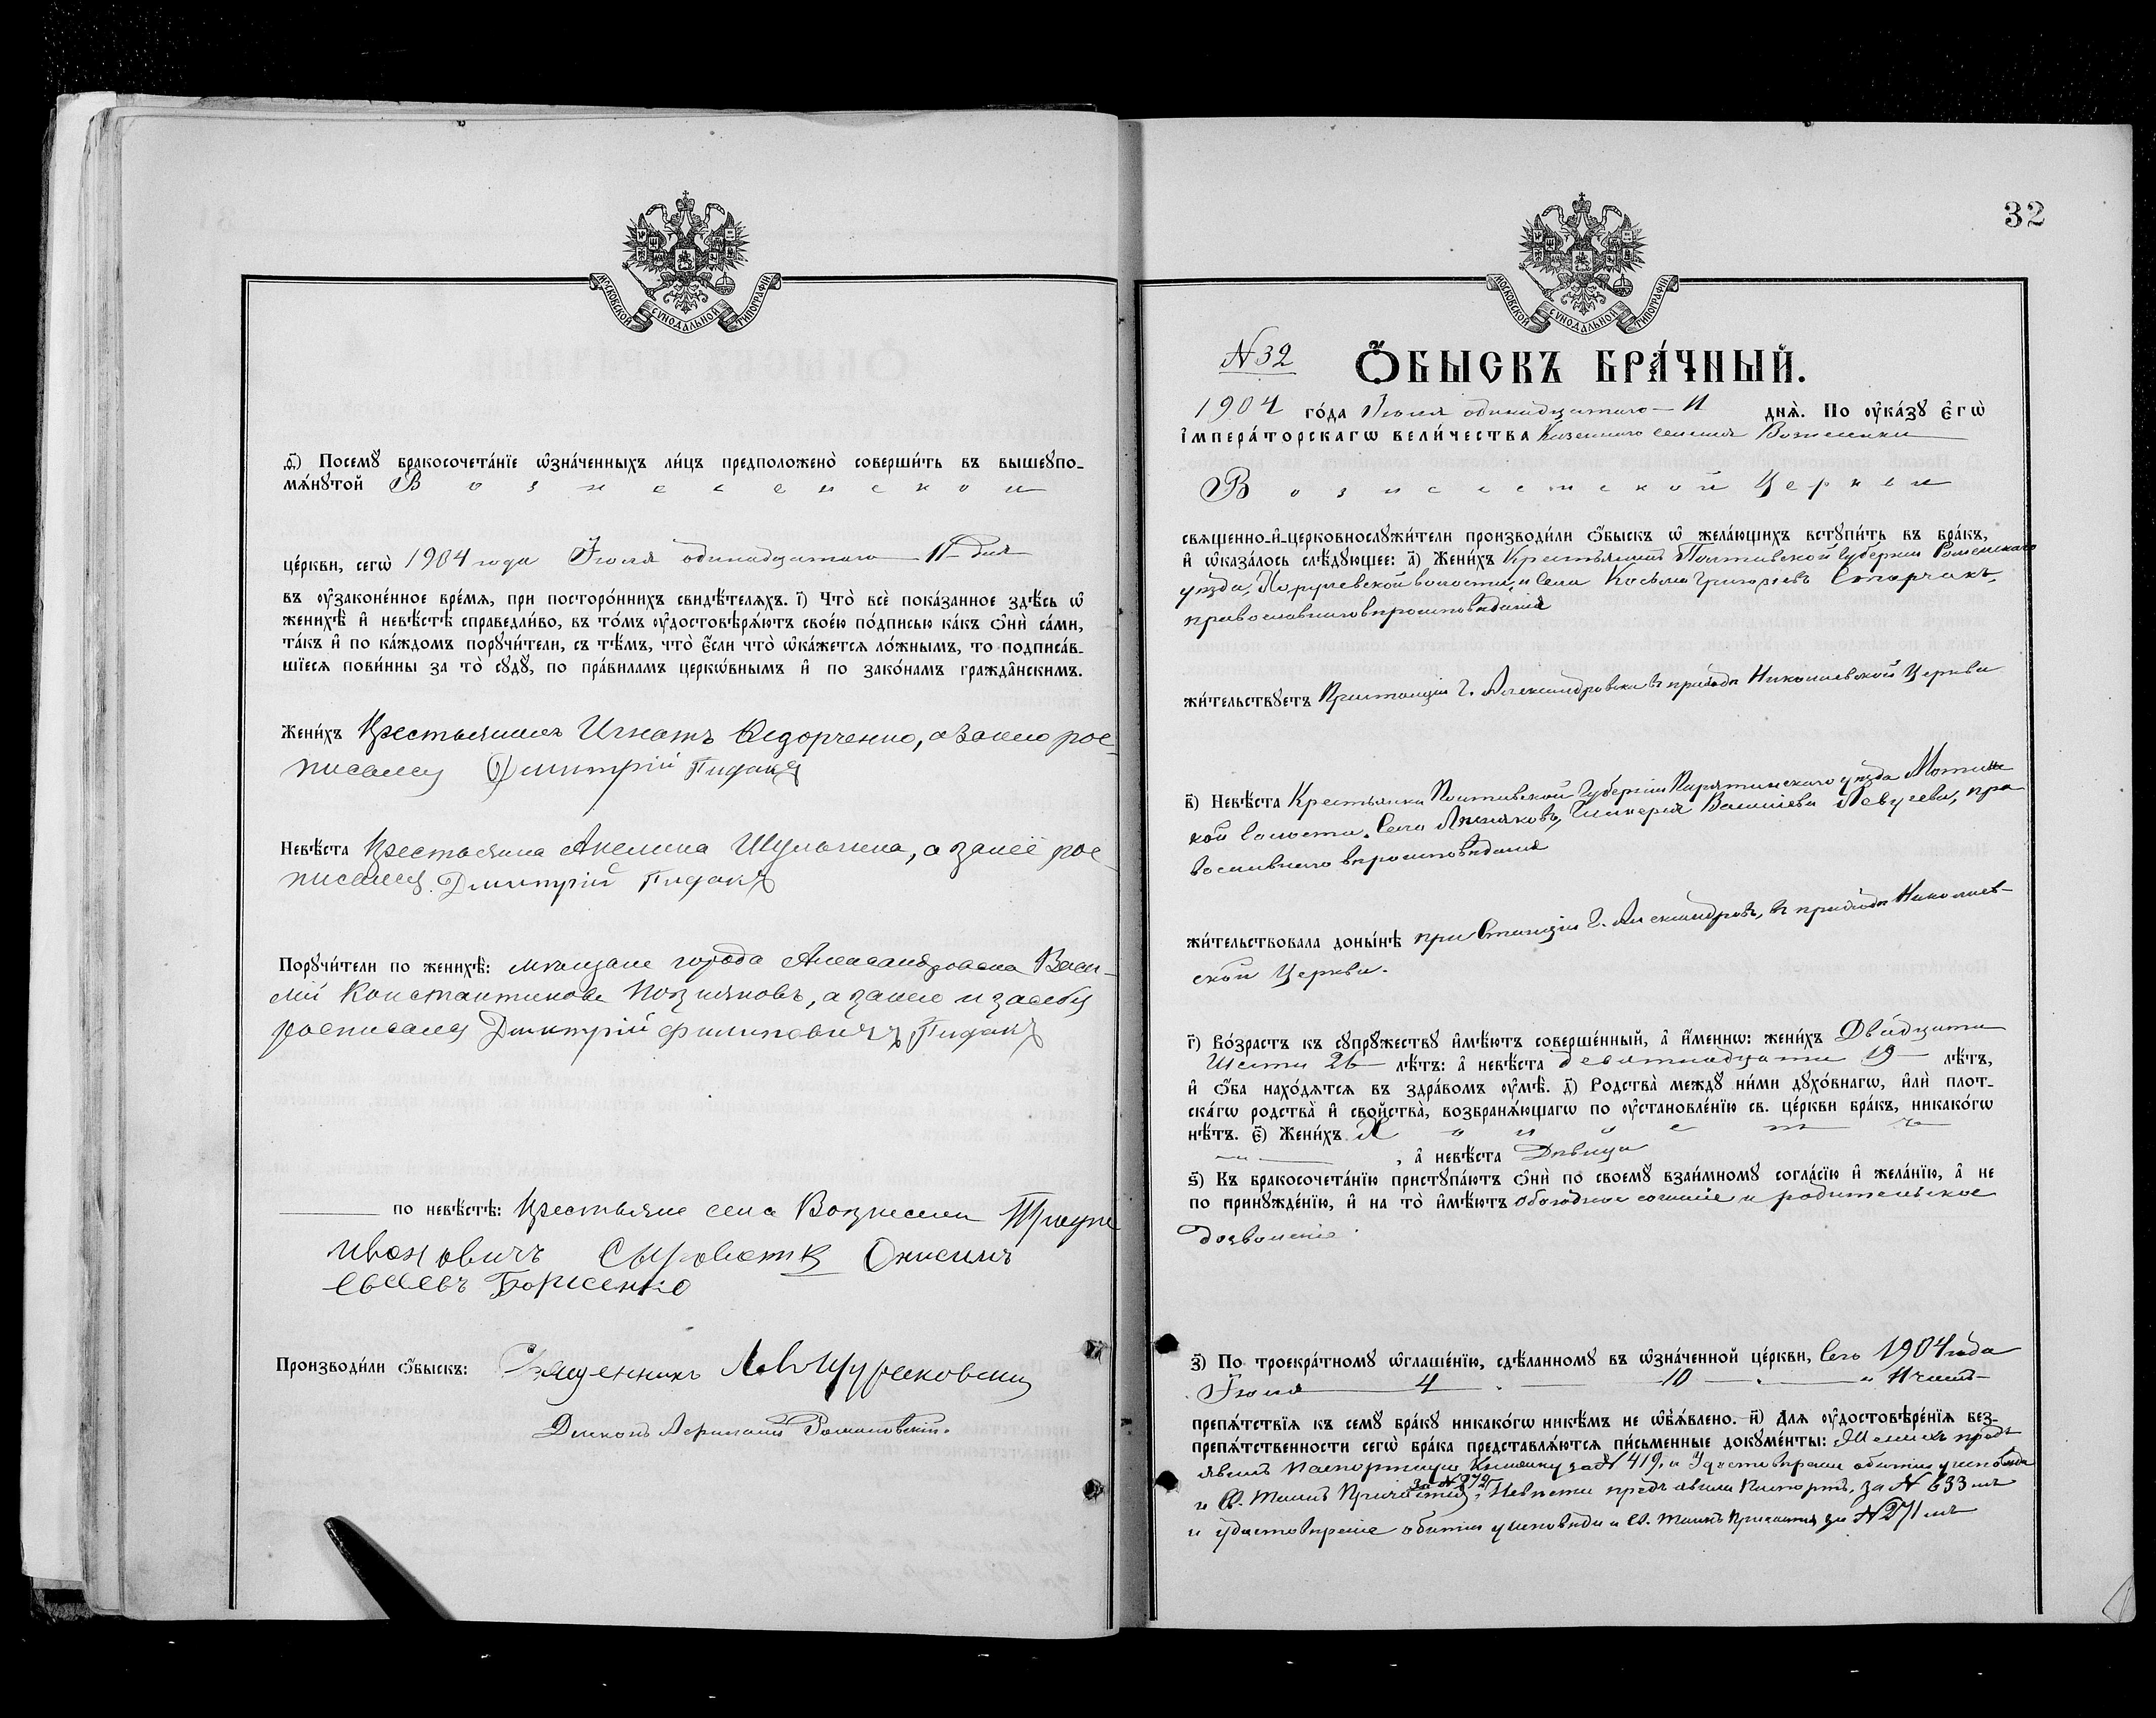 МОСКОВСКОЙ СУНОДАЛЬНОЙ ТИПОГРАФІИ
ѳ҃) Посемꙋ бракосочета́нїе ѡ҆зна́ченныхъ ли́цъ предположено̀ соверши́ть въ вышеꙋпо-
мѧ́нꙋтой Вознесенской
це́ркви, сегѡ̀ 1904 года Іюля одинадцатаго 11 дня
въ ᲂу҆законе́нное вре́мѧ, при посторо́ннихъ свидѣ́телѧхъ. і҃) Что̀ всѐ пока́занное здѣ́сь ѡ҆
женихѣ̀ и҆ невѣ́стѣ справедли́во, въ то́мъ ᲂу҆достовѣрѧ́ютъ свое́ю по́дписью ка́къ ѻ҆нѝ са́ми,
та́къ и҆ по ка́ждомъ порꙋчи́тели, съ тѣ́мъ, что̀ є҆́сли что̀ ѡ҆ка́жетсѧ ло́жнымъ, то подписа́в-
шїесѧ пови́нны за то̀ сꙋдꙋ̀, по пра́виламъ церкѡ́внымъ и҆ по зако́намъ гражда̑нскимъ.
Жени́хъ Крестьянинъ Игнатъ Ѳедорченко, а за него рос-
писался Дмитрій Пидакъ
Невѣ́ста Крестьянка Акелина Шульгина, а за нее рос
писался Дмитрій Пидакъ
Порꙋчи́тели по женихѣ̀: мѣщане города Александровска Васи-
лій Константинова Позняковъ, а за него и за себя
росписался Дмитрій Филиповичъ Пидакъ
по невѣ́стѣ: Крестьяне села Вознесенки
Ивановичъ Сыроватка Онисимъ
Евсеевъ Борисенко
Производи́ли ѻ҆́быскъ: Священникъ
Діаконъ Романовскій.
32
МОСКОВСКОЙ СУНОДАЛЬНОЙ ТИПОГРАФІИ
№ 32 Ѻ҆́БЫСКЪ БРА́ЧНЫЙ.
1904 го́да Іюля одинадцатаго 11 днѧ̀. По ᲂу҆ка́зꙋ є҆гѡ̀
і҆мпера́торскагѡ вели́чества Казеннаго селенія Вознесенки
Вознесенской Церкви
свѧщенно-и҆-церковнослꙋжи́тели производи́ли ѻ҆́быскъ ѡ҆ жела́ющихъ встꙋпи́ть въ бра́къ,
и҆ ѡ҆каза́лось слѣ́дꙋющее: а҃) Жени́хъ Крестьянинъ Полтавской Губерніи Роменскаго
уѣзда, волости, и села Косьма Григоріевъ Старчакъ,
православнаго вѣроисповѣданія
жи́тельствꙋетъ При станціи г. Александровска въ приходѣ Николаевской Церкви
в҃) Невѣ́ста Крестьянка Полтавской Губерніи Пирятинскаго уѣзда
кой волости. Села Гликерія Васильева Левусева, пра
вославнаго вѣроисповѣданія
жи́тельствовала доны́нѣ при Станціи г. Александров., въ приходѣ Николаев-
ской Церкви.
г҃) Во́зрастъ къ сꙋпрꙋ́жествꙋ и҆мѣ́ютъ соверше́нный, а҆ и҆́менно: жени́хъ Двадцати
Шести 26 лѣ́тъ: а҆ невѣ́ста девятнадцати 19 лѣ́тъ,
и҆ ѻ҆́ба нахо́дѧтсѧ въ здра́вомъ ᲂу҆мѣ̀. д҃) Родства̀ междꙋ̀ ни́ми дꙋхо́внагѡ, и҆лѝ плот-
ска́гѡ родства̀ и҆ сво́йства̀, возбранѧ́ющагѡ по ᲂу҆становле́нїю св. це́ркви бра́къ, никако́гѡ
нѣ́тъ. є҃) Жени́хъ Холостъ
, а҆ невѣ́ста Дѣвица
ѕ҃) Къ бракосочета́нїю пристꙋпа́ютъ ѻ҆нѝ по своемꙋ̀ взаи́мномꙋ согла́сїю и҆ жела́нїю, а҆ не
по принꙋжде́нїю, и҆ на то̀ и҆мѣ́ютъ обоюдное согласіе и родительское
дозволеніе
з҃) По троекра́тномꙋ ѡ҆глаше́нїю, сдѣ́ланномꙋ въ ѡ҆зна́ченной це́ркви, Сего 1904 года
Іюля 4 10 и 11 чиселъ
препѧ́тствїѧ къ семꙋ̀ бра́кꙋ никако́гѡ никѣ́мъ не ѡ҆б̾ѧ́влено. и҃) Длѧ ᲂу҆достовѣре́нїѧ без-
препѧ́тственности сегѡ̀ бра́ка представлѧ́ютсѧ пи́сьменные докꙋме́нты: Женихъ предъ
явилъ Паспортную Книжку за № 419, и Удостовѣреніе о бытіи у исповѣди
и Св. Таинъ Причастія за № 272, Невѣста предъявила Паспортъ, за № 633 мъ
и удостовѣреніе о бытіи у исповѣди и Св. Таинъ Причастія за № 271 мъ